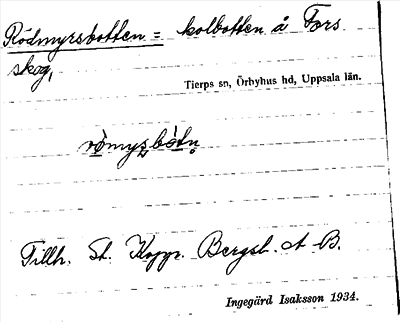 Rödmyrsbotten = kolbotten å Fors
skog,
Tierps sn, Örbyhus hd, Uppsala län.
römysbòtn
Tillh. St. Koppr. Bergsl. A B.
Ingegärd Isaksson 1934.